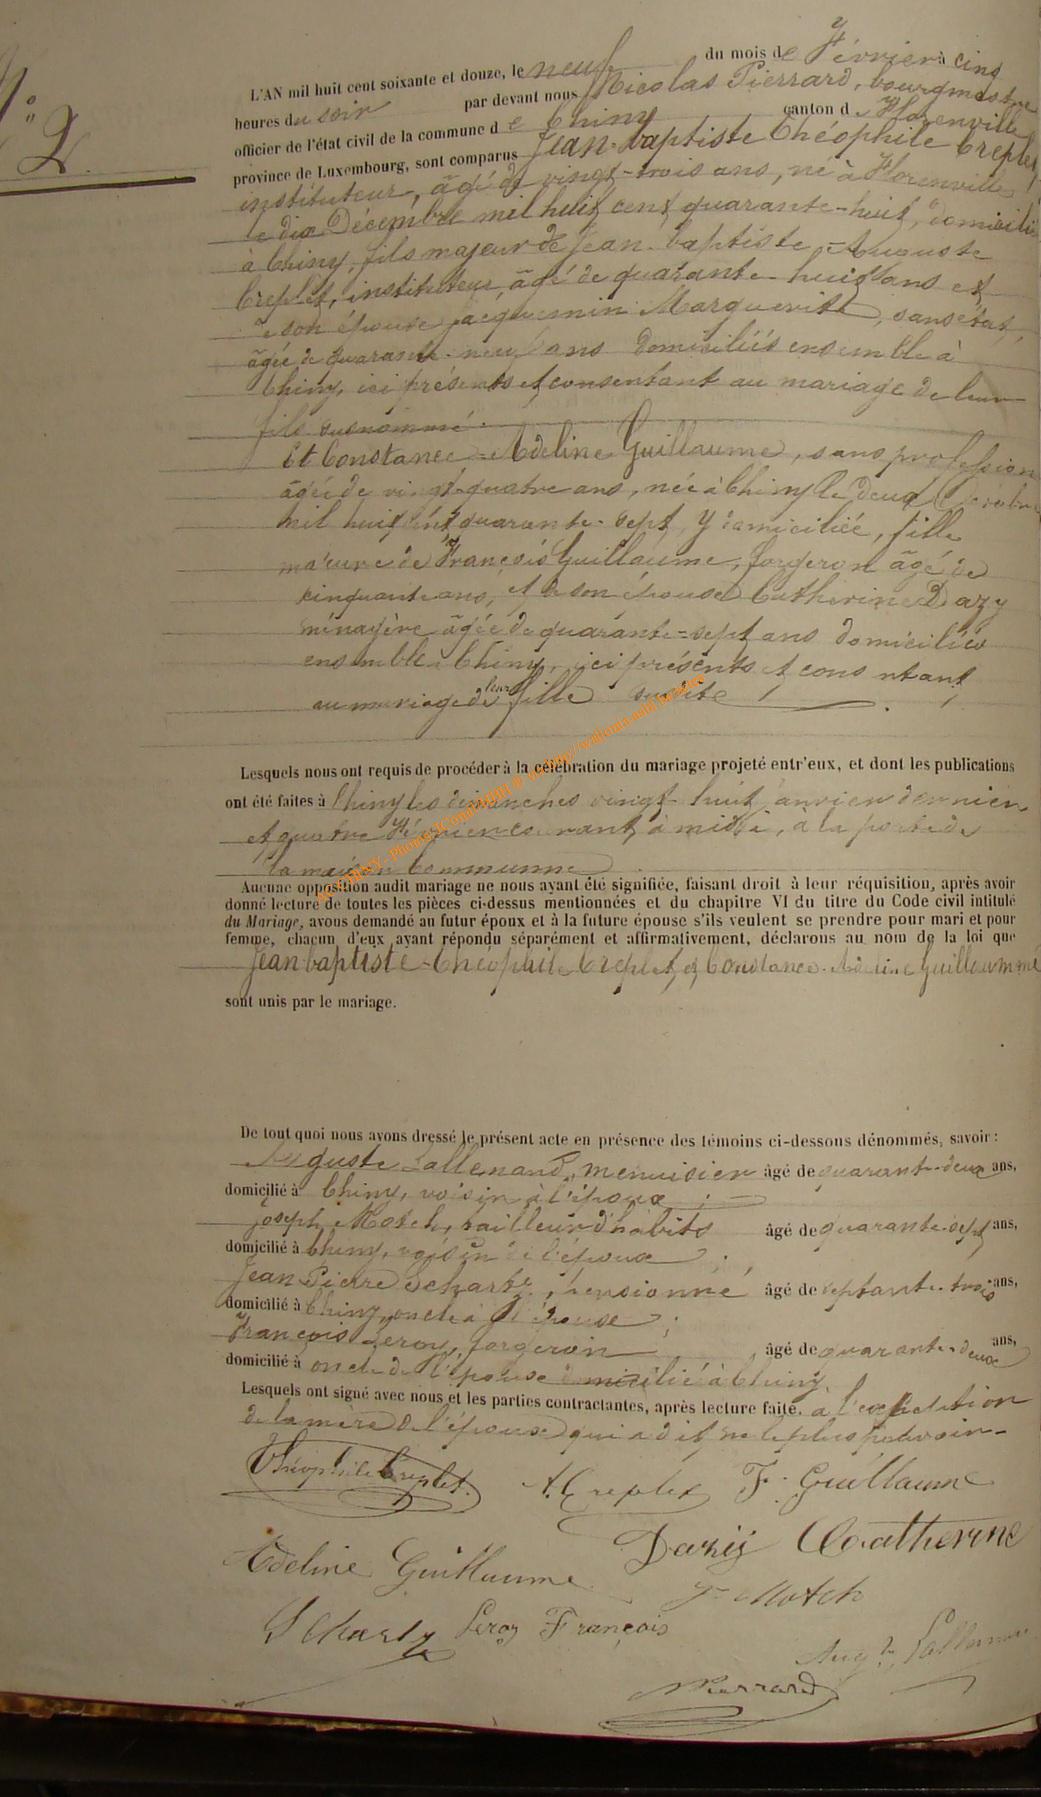 N° 2
L'AN mil huit cent soixante et douze, le neuf du mois de Février à cinq
heures du soir par devant nous Nicolas Pierrard, bourgmestre
officier de l'état civil de la commune de Chiny canton de Florenville
province de Luxembourg, sont comparus Jean-baptiste Théophile Creplet,
instituteur, âgé de vingt-trois ans, né à Florenville
le dix Décembre mil huit cent quarante-huit, domicilié
à Chiny, fils majeur de Jean-baptiste-Auguste
Creplet, instituteur, âgé de quarante-huit ans et
de son épouse Jacquemin Marguerite, sans état,
âgée de quarante-neuf ans domiciliés ensemble à
Chiny, ici présents et consentant au mariage de leur
fils susnommé.
Et Constance-Adeline Guillaume, sans profession
âgée de vingt-quatre ans, née à Chiny le deux
mil huit cent quarante-sept, y domiciliée, fille
majeure de François Guillaume, forgeron âgé de
cinquante ans, et de son épouse Catherine Dazy
ménagère âgée de quarante-sept ans domiciliés
ensemble à Chiny, ici présents et consentant
au mariage de leur fille susdite
Lesquels nous ont requis de procéder à la célébration du mariage projeté entr'eux, et dont les publications
ont été faites à Chiny les dimanches vingt-huit janvier dernier
et quatre Février courant, à midi, à la porte de
la maison Communne
Aucune opposition audit mariage ne nous ayant été signifiée, faisant droit à leur réquisition, après avoir
donné lecture de toutes les pièces ci-dessus mentionnées et du chapitre VI du titre du Code civil intitulé
du Mariage, avous demandé au futur époux et à la future épouse s'ils veulent se prendre pour mari et pour
femme, chacun d'eux ayant répondu séparément et affirmativement, déclarons au nom de la loi que
Jean baptiste-Théophile Creplet, et Constance-Adeline Guillaumme
sont unis par le mariage.
De tout quoi nous avons dressé le présent acte en présence des témoins ci-dessous dénommés, savoir :
Auguste Lallemand, menuisier âgé de quarante-deux ans,
domicilié à Chiny, voisin à l'époux ;
Joseph Motch, tailleur d'habits âgé de quarante-sept ans,
domicilié à Chiny, voisin de l'époux ;
Jean Pierre Schartz, pensionné âgé de septante-trois ans,
domicilié à Chiny, oncle à l'épouse ;
François Leroy, forgeron âgé de quarante-deux ans,
domicilié à oncle de l'épouse domicilié à Chiny
Lesquels ont signé avec nous et les parties contractantes, après lecture faite. à l'exception
de la mère de l'époux qui a dit ne le plus pouvoir.
Théophile Creplet. A. Creplet F. Guillaume
Dazij Catherine
Adeline Guillaume
J. Motch
Schartz Leroy François
Aug. Lallemand
Pierrard